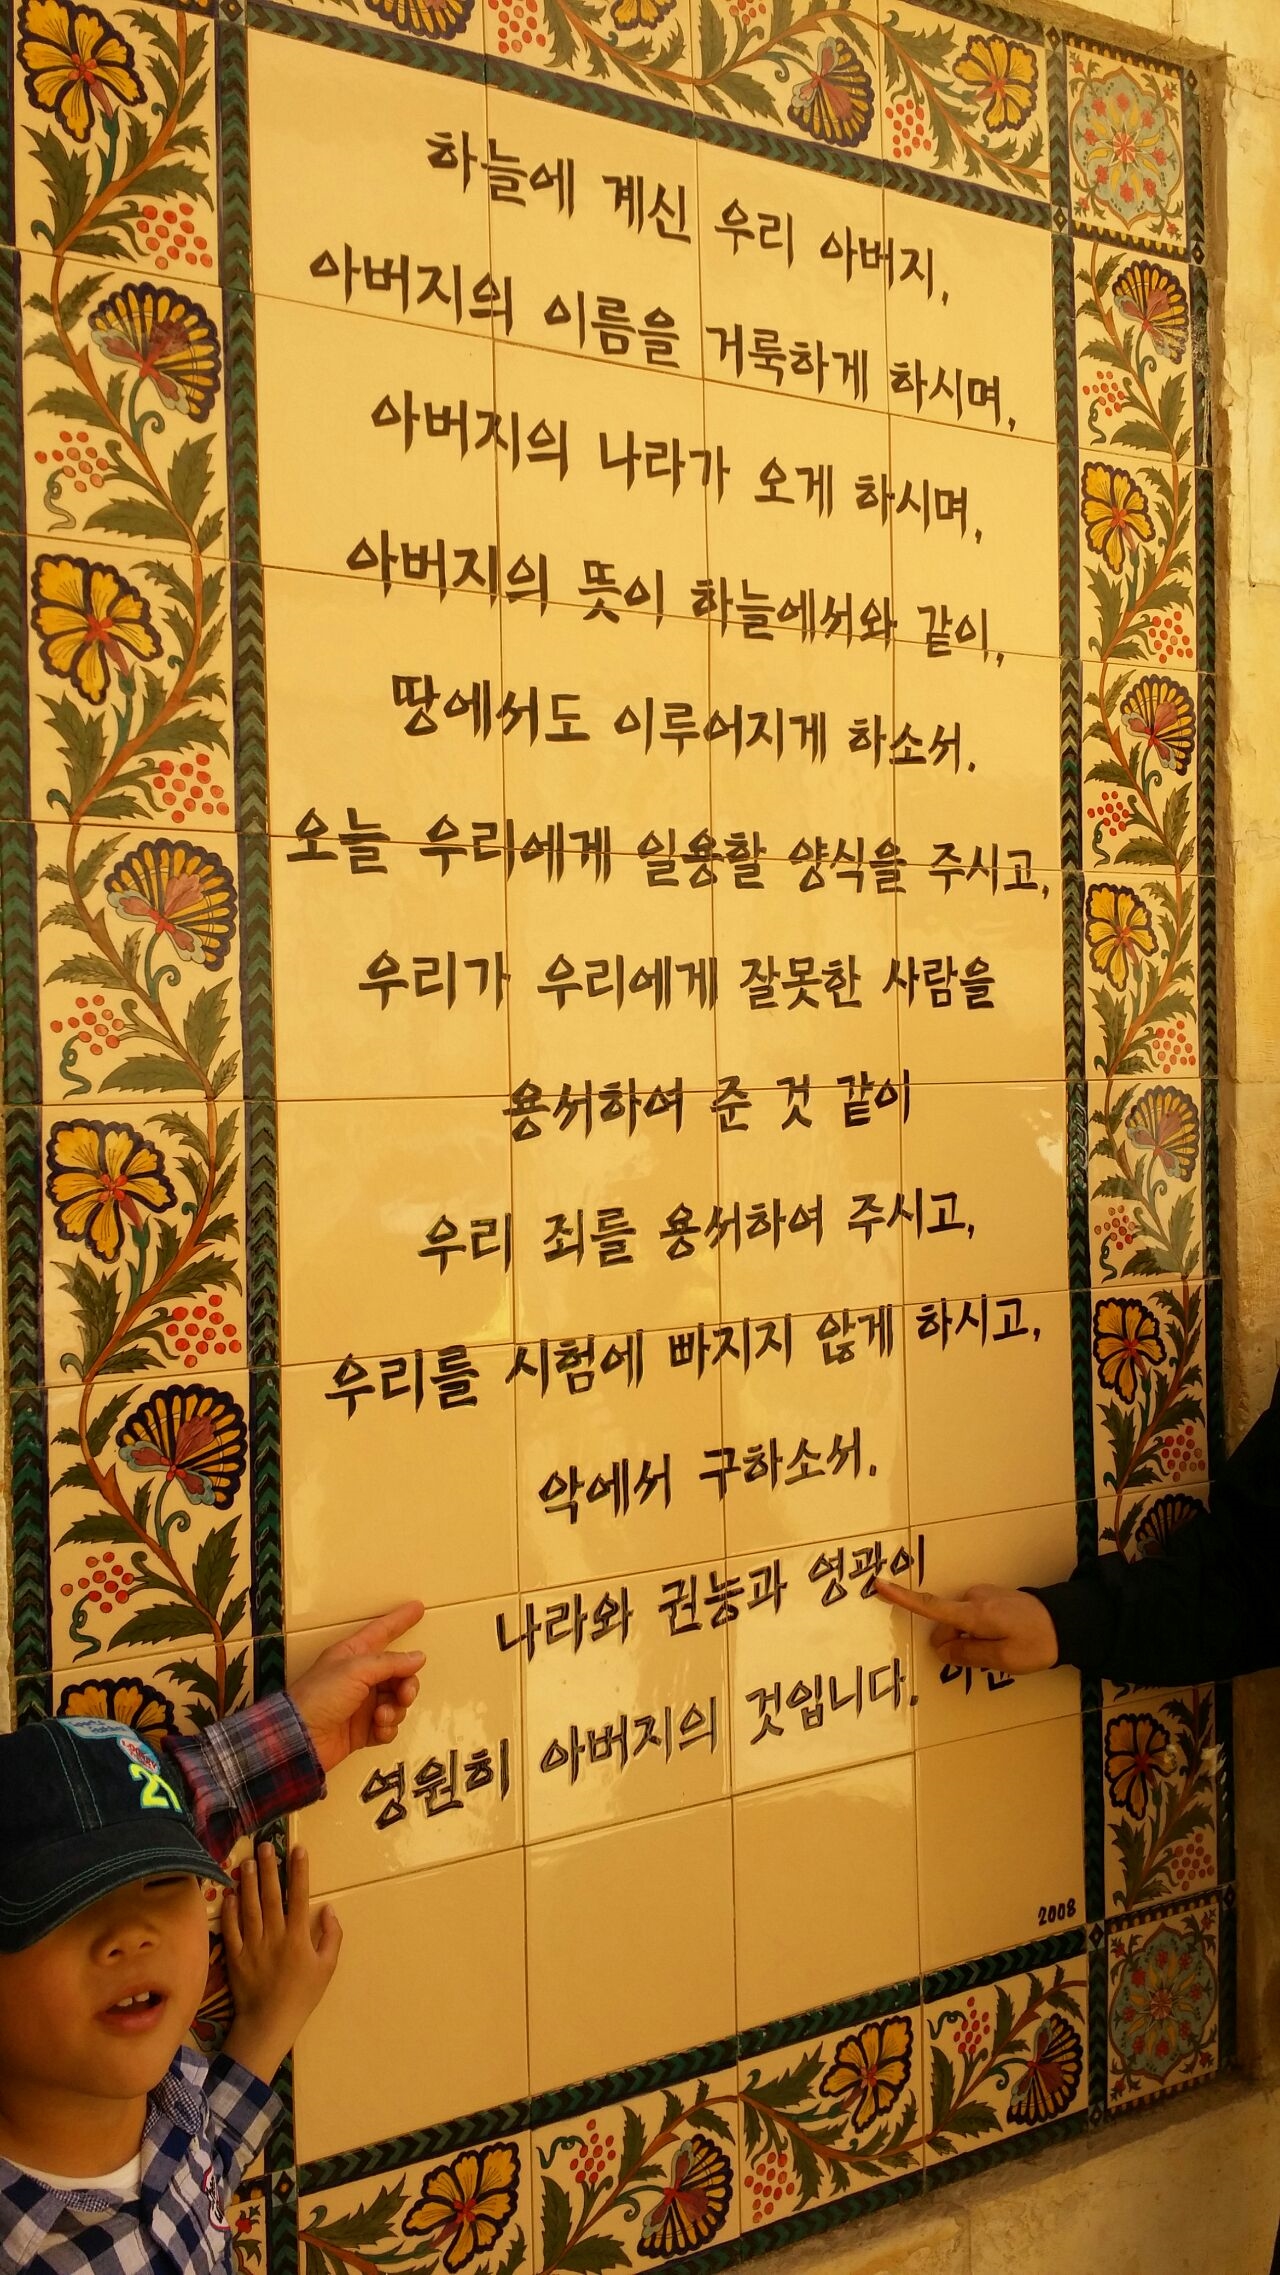 하늘에 계신 우리 아버지,
아버지의 이름을 거룩하게 하시며,
아버지의 나라가 오게 하시며,
아버지의 뜻이 하늘에서와 같이,
땅에서도 이루어지게 하소서.
오늘 우리에게 일용할 양식을 주시고,
우리가 우리에게 잘못한 사람을
용서하여 준 것 같이
우리 죄를 용서하여 주시고,
우리를 시험에 빠지지 않게 하시고,
악에서 구하소서.
나라와 권능과 영광이
영원히 아버지의 것입니다.
2008
21